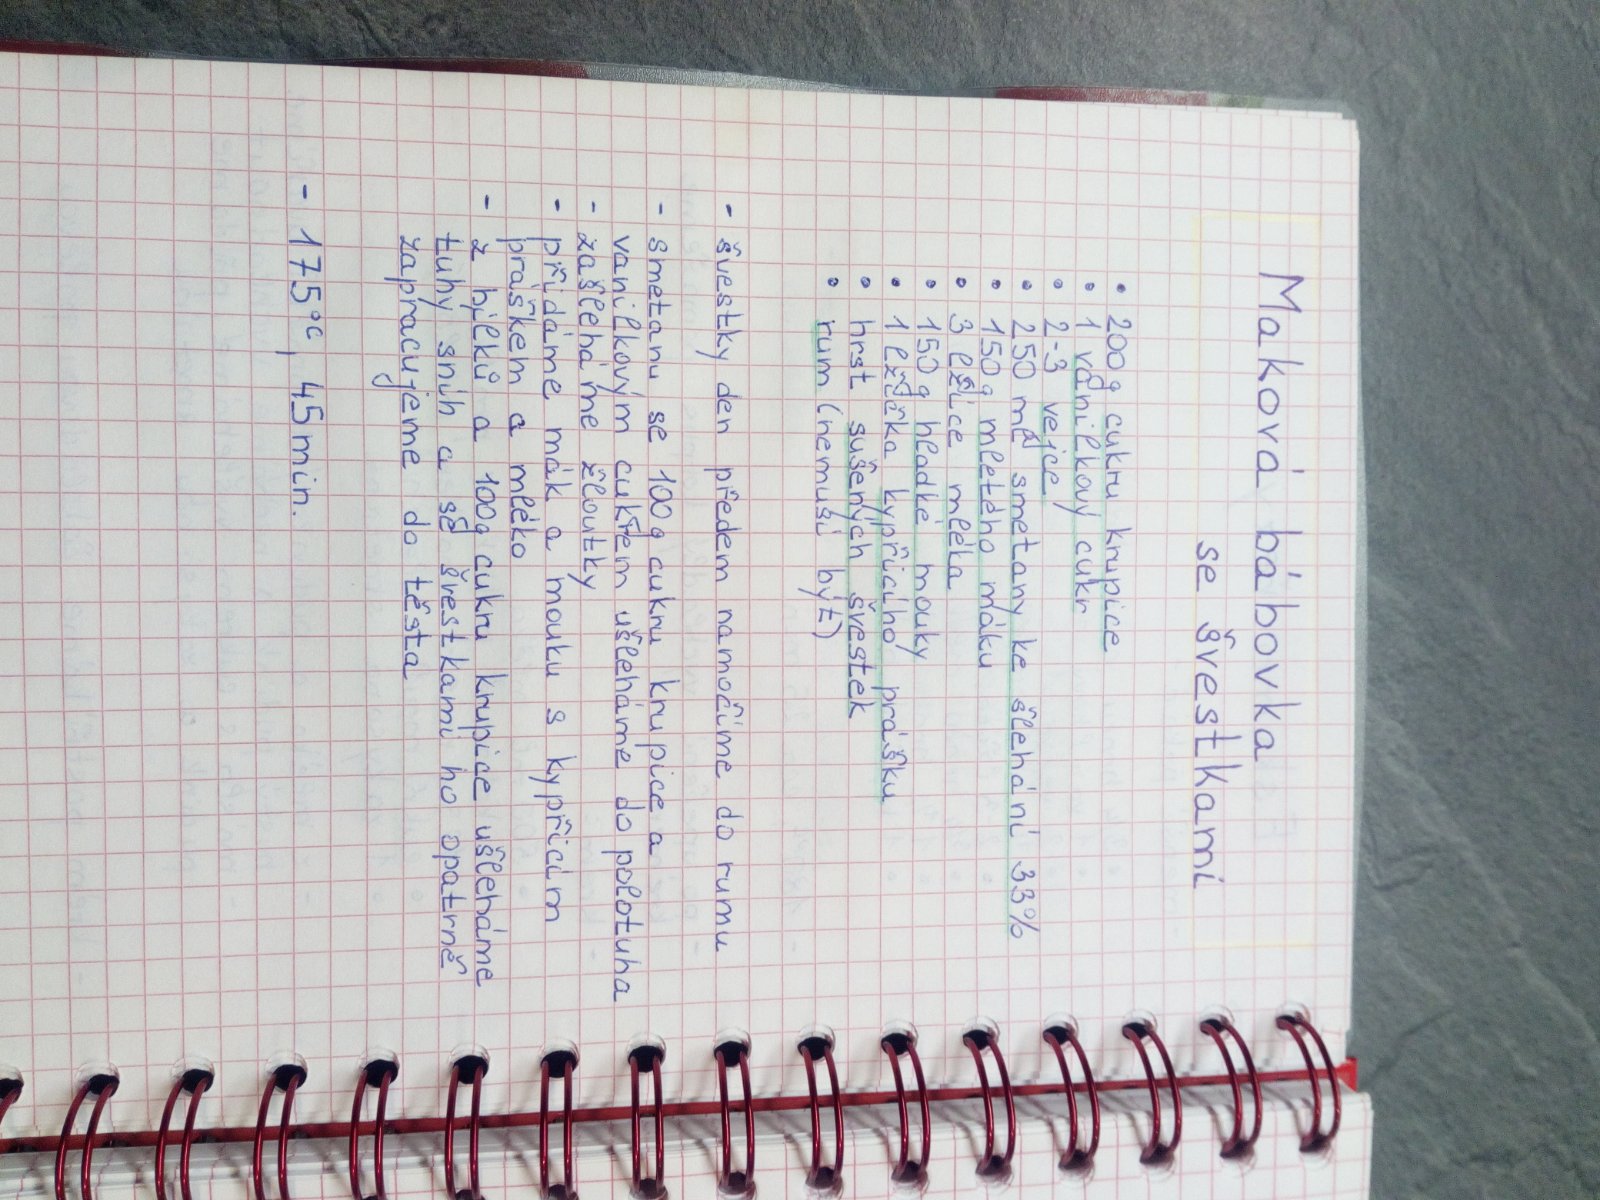 Maková bábovka
se švestkami
• 200g cukru krupice
• 1 vanilkový cukr
• 2-3 vejce
• 250 ml smetany ke šlehání 33%
• 150g mletého máku
• 3 lžíce mléka
• 150g hladké mouky
• 1 lžička kypřícího prášku
• hrst sušených švestek
• rum (nemusí být)
- švestky den předem namočíme do rumu
- smetanu se 100g cukru krupice a
vanilkovým cukrem ušleháme do polotuha
- zašleháme žloutky
- přidáme mák a mouku s kypřicím
práškem a mléko
- z bílků a 100g cukru krupice ušleháme
tuhý sníh a se švestkami ho opatrně
zapracujeme do těsta
- 175°C, 45min.